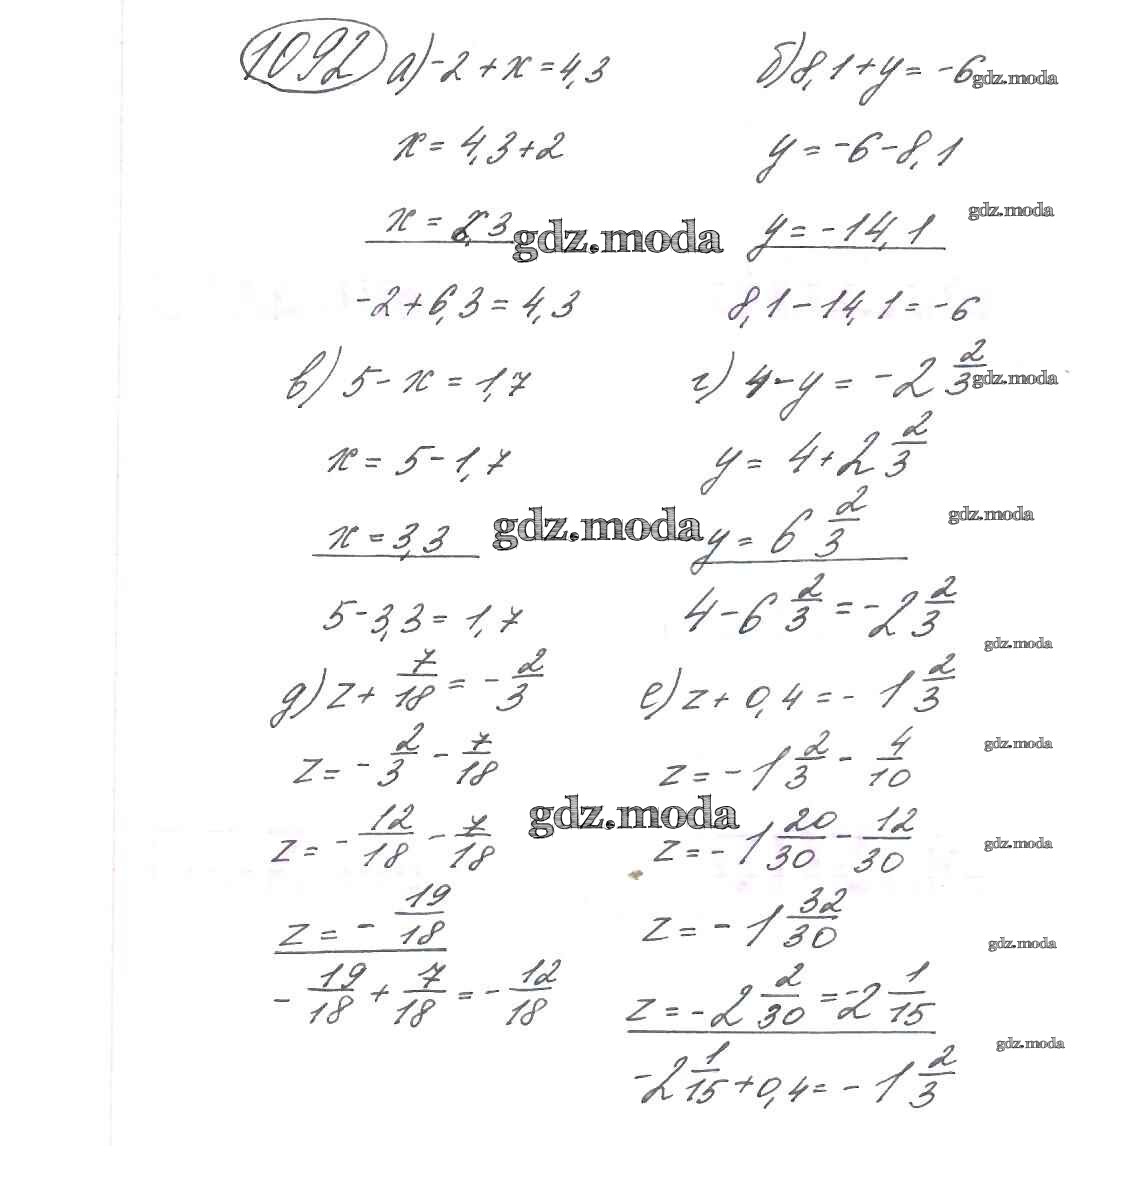 1092 а) -2 + x = 4,3
x = 4,3 + 2
x = 6,3
-2 + 6,3 = 4,3
б) 8,1 + y = -6
y = -6 - 8,1
y = -14,1
8,1 - 14,1 = -6
в) 5 - x = 1,7
x = 5 - 1,7
x = 3,3
5 - 3,3 = 1,7
г) 4 - y = -2 2/3
y = 4 + 2 2/3
y = 6 2/3
4 - 6 2/3 = -2 2/3
д) z + 7/18 = - 2/3
z = - 2/3 - 7/18
z = - 12/18 - 7/18
z = - 19/18
- 19/18 + 7/18 = - 12/18
е) z + 0,4 = - 1 2/3
z = - 1 2/3 - 4/10
z = - 1 20/30 - 12/30
z = - 1 32/30
z = - 2 2/30 = -2 1/15
-2 1/15 + 0,4 = - 1 2/3
gdz.moda
gdz.moda
gdz.moda
gdz.moda
gdz.moda
gdz.moda
gdz.moda
gdz.moda
gdz.moda
gdz.moda
gdz.moda
gdz.moda